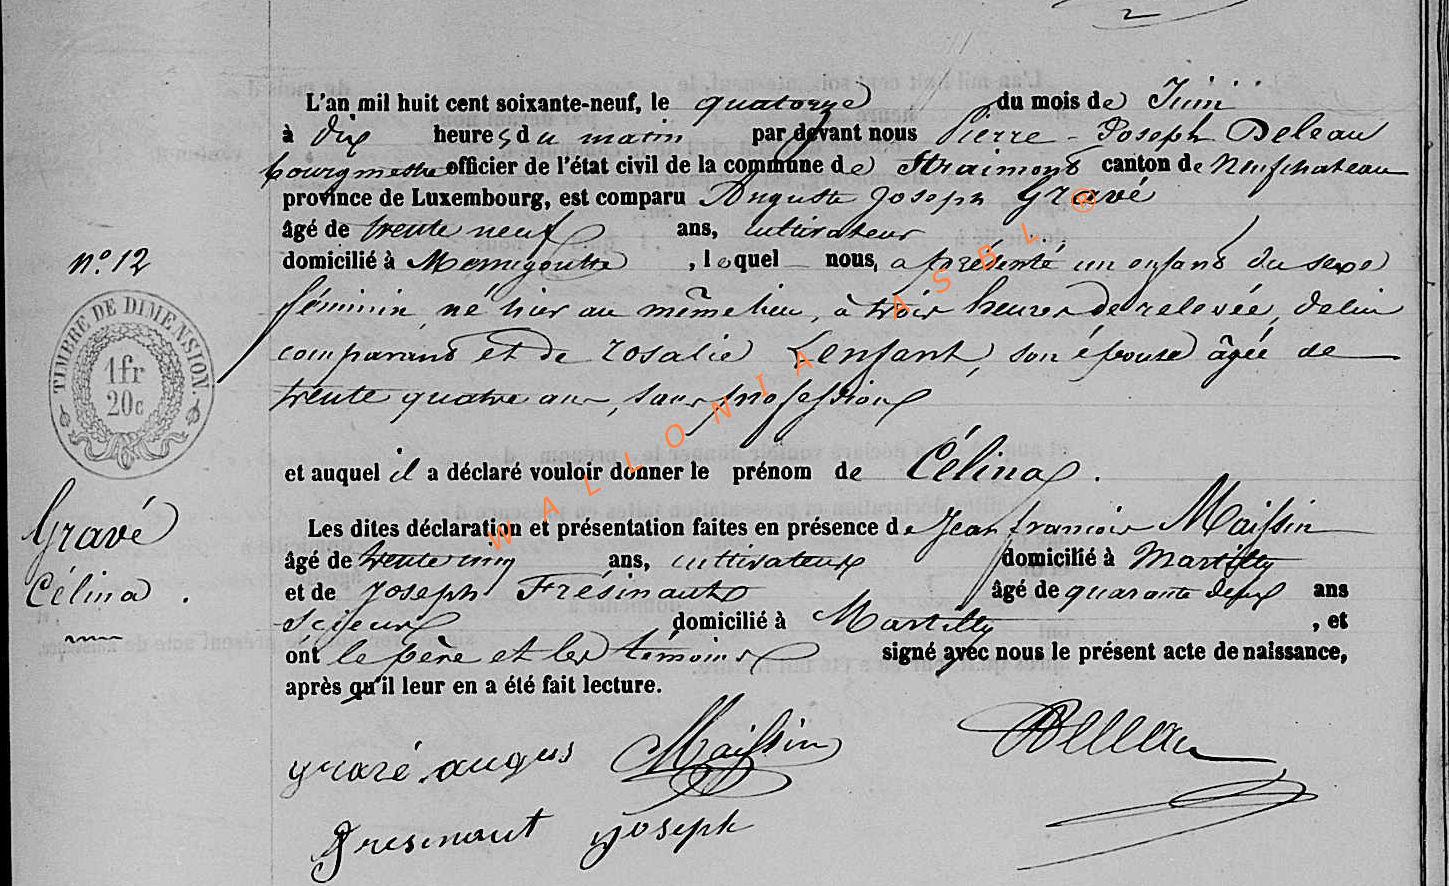 L'an mil huit cent soixante-neuf, le quatorze du mois de Juin
à dix heures du matin par devant nous Pierre-Joseph Deleau
bourgmestre officier de l'état civil de la commune de Straimont canton de Neufchateau
province de Luxembourg, est comparu Auguste Joseph Gravé
âgé de trente neuf ans, cultivateur
n° 12
domicilié à Menugoutte, lequel nous, a présenté un enfant du sexe
féminin, né hier au même lieu, à trois heures de relevée, de lui
comparant et de Rosalie Lenfant, son épouse âgée de
trente quatre ans, sans profession
TIMBRE DE DIMENSION.
1fr
20c
et auquel il a déclaré vouloir donner le prénom de Célina.
Gravé
Célina.
Les dites déclaration et présentation faites en présence de Jean François Maissin
âgé de trente cinq ans, cultivateur domicilié à Martilly
et de Joseph Frésinaut âgé de quarante deux ans
scieur domicilié à Martilly, et
ont le père et les témoins signé avec nous le présent acte de naissance,
après qu'il leur en a été fait lecture.
gravé augus Maissin Deleau
fresinaut joseph
WALLONIA ASBL ®